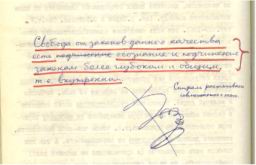 Свобода от законов данного качества
есть подчинение осознание и подчинение
законам более глубоким и общим,
т.е. внутренним.